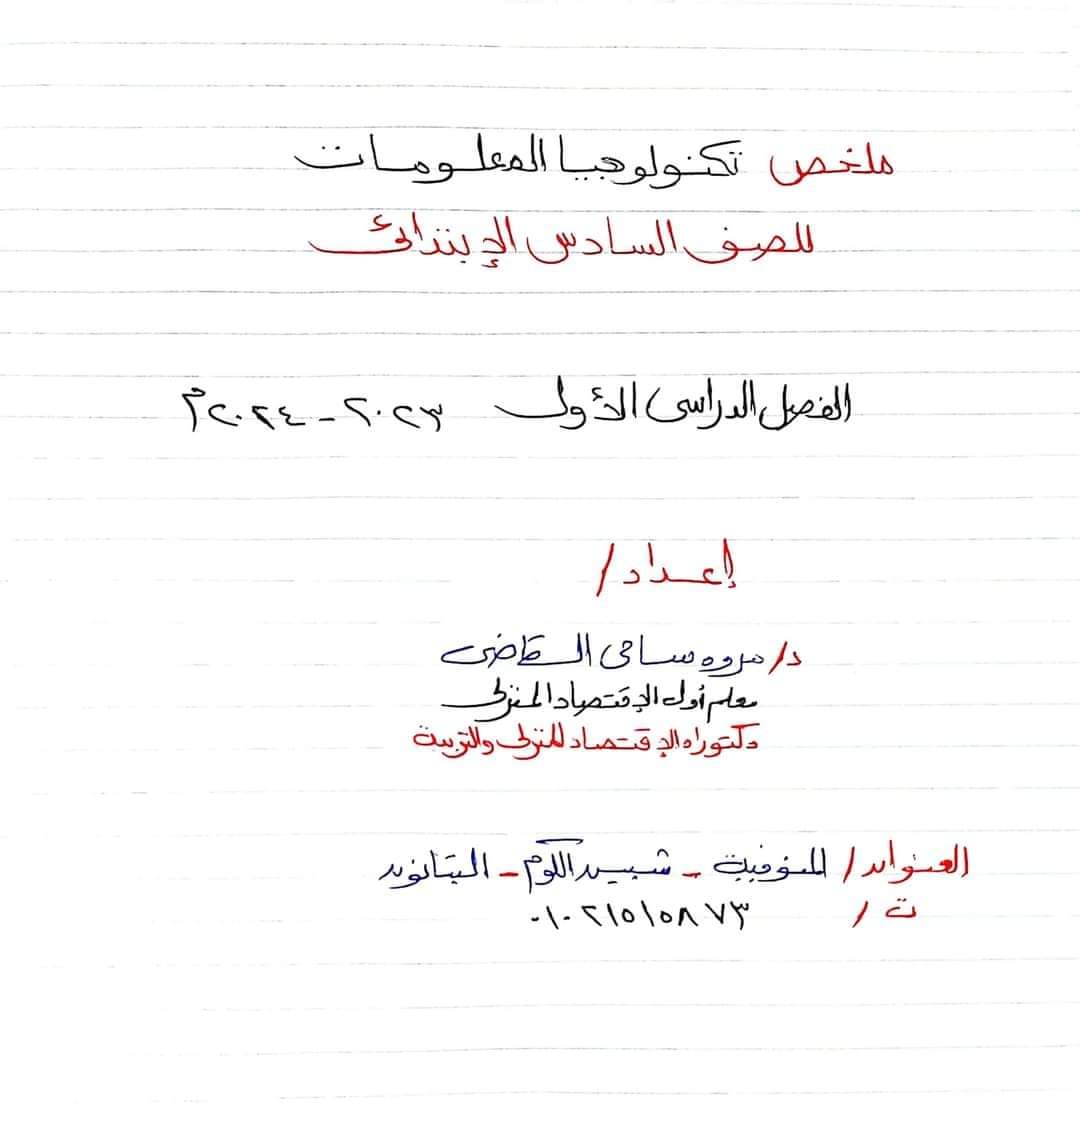 ملخص تكنولوجيا المعلومات
للصف السادس الإبتدائى
الفصل الدراسى الأول ٢٠٢٣ - ٢٠٢٤م
إعداد /
د/ مروه سامى القاضى
معلم أول الإقتصاد المنزلى
دكتوراه الإقتصاد المنزلى والتربية
العنوان / المنوفية - شبين الكوم - البتانون
ت / ٠١٠٢١٥١٥٨٧٣